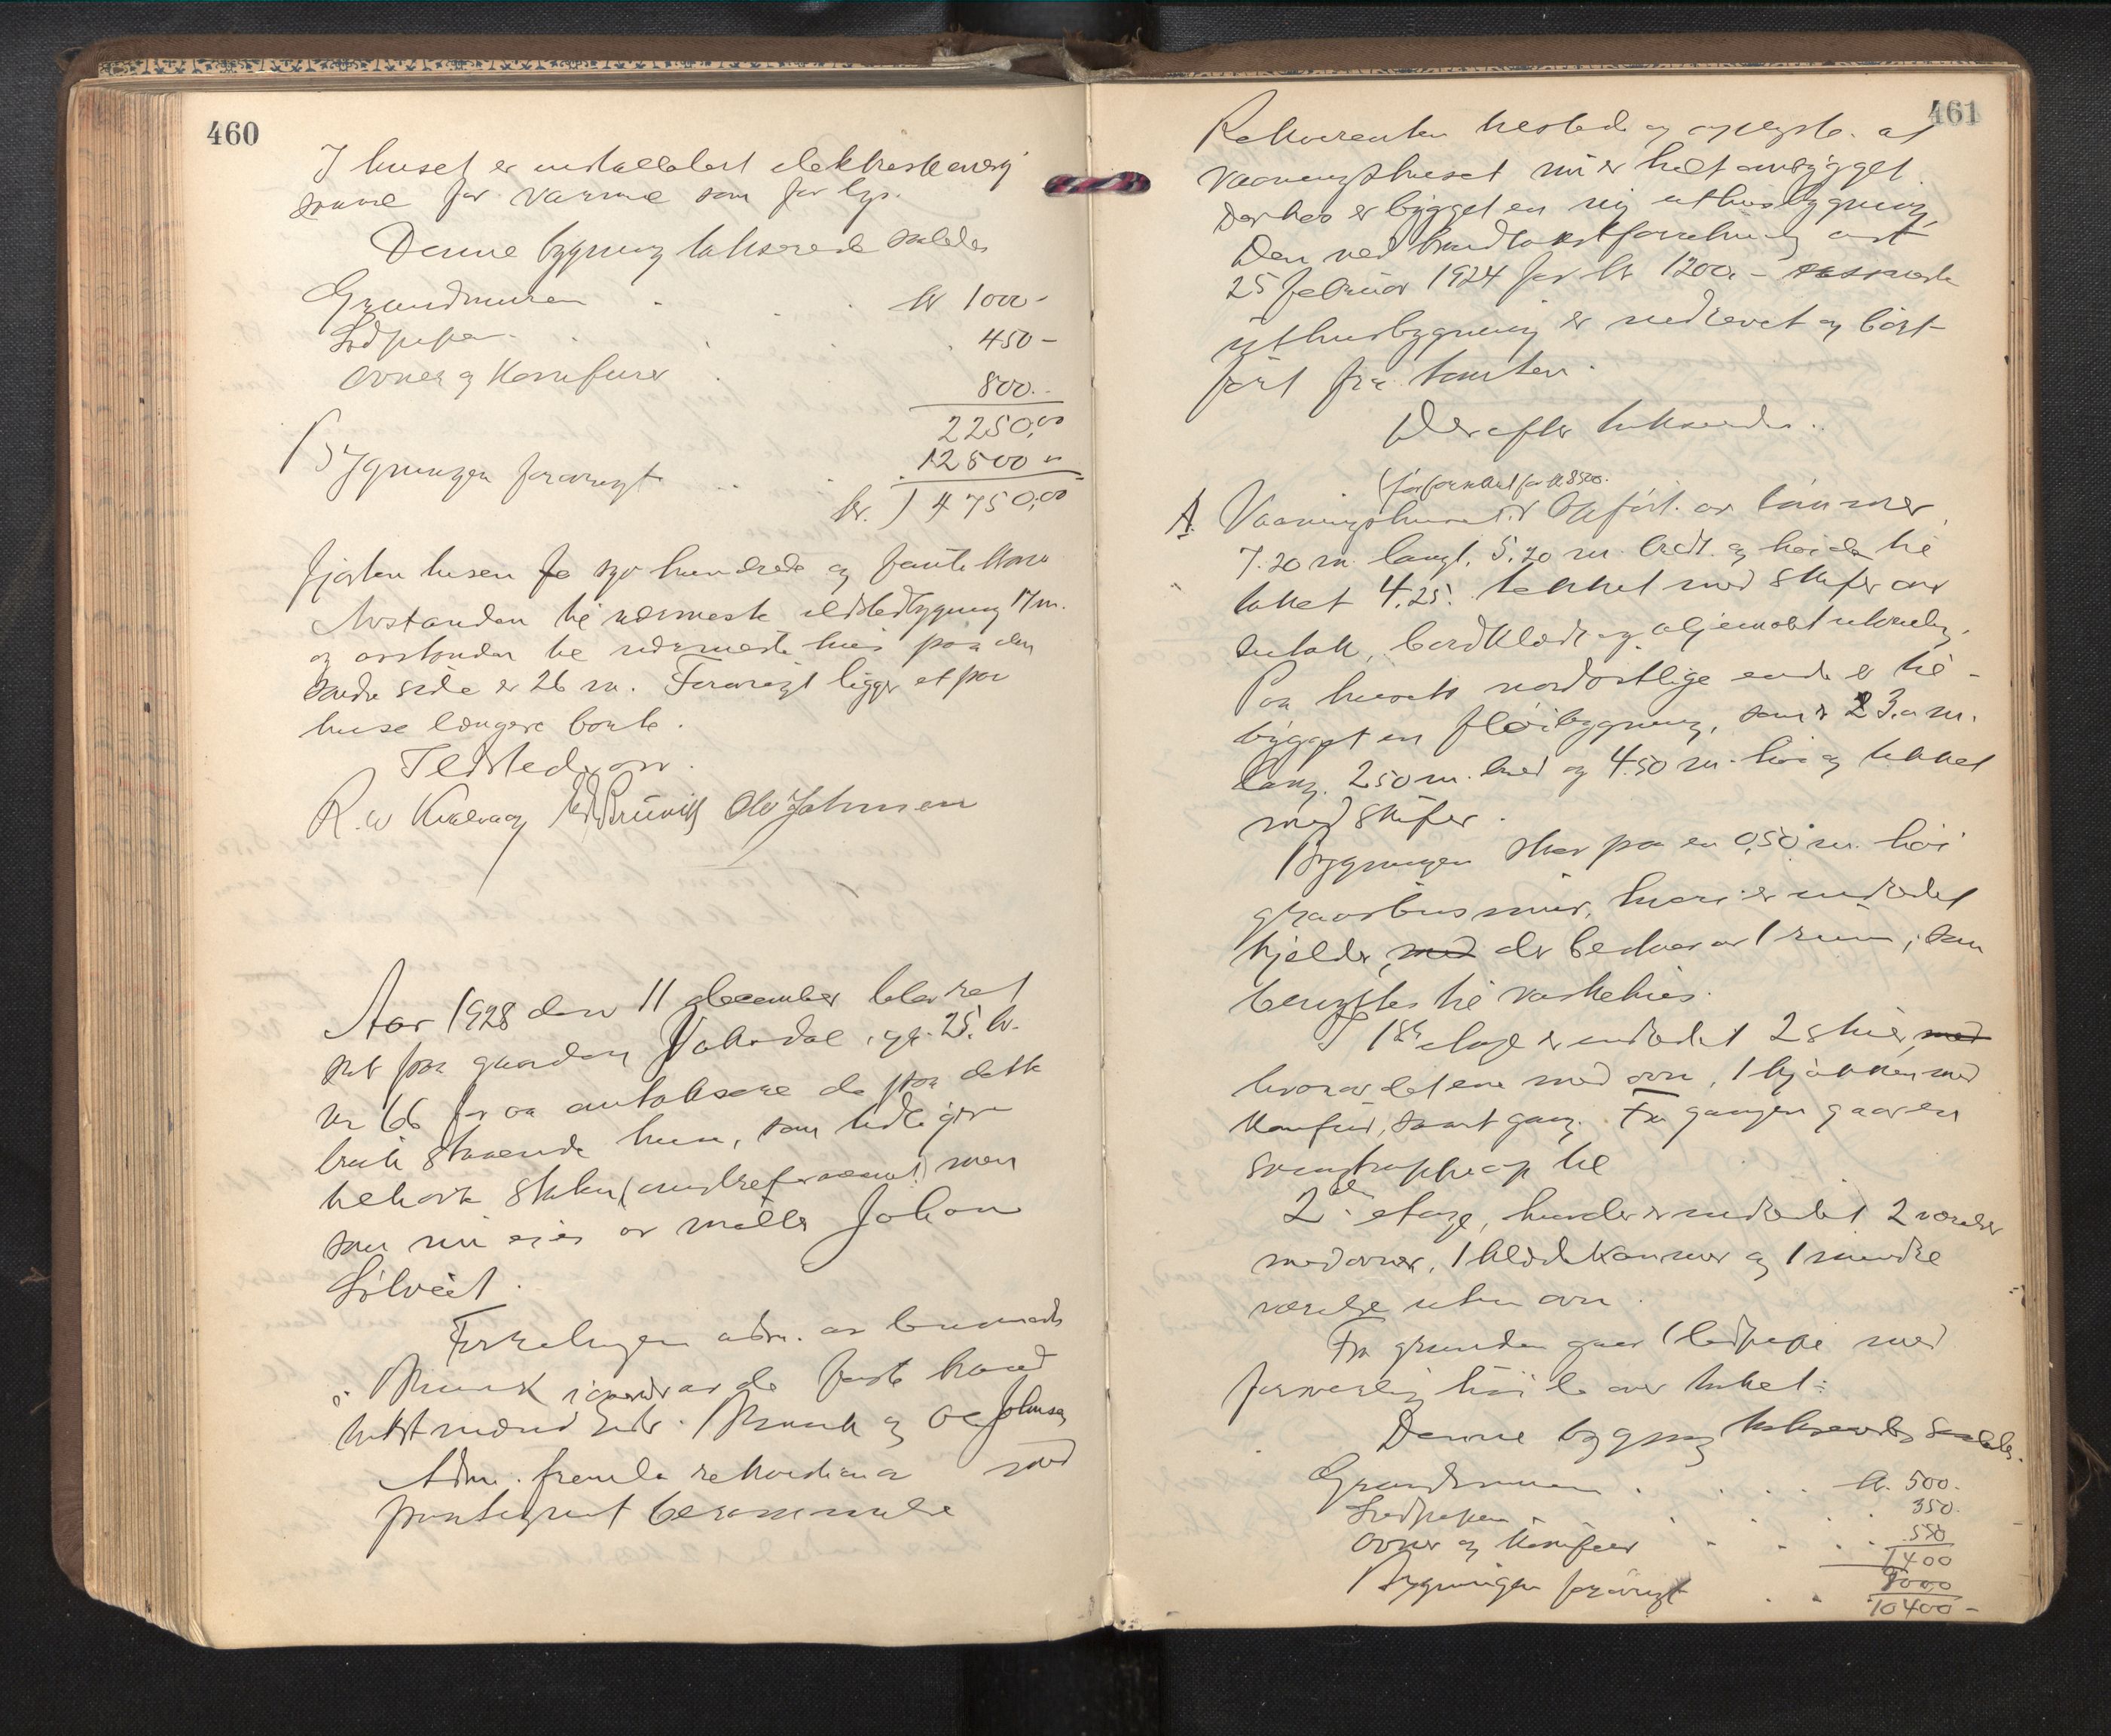 460
I huset er installert elektrisk energi
saavel for varme som for lys.
Denne bygning takseredes saaledes
Grundmuren . . . kr 1000-
Ildpipen . . . 450-
Ovner og Komfurer . 800.-
2250,00
Bygningen forøvrigt . . 12500 "
kr. 14750,00
Fjorten tusen syv hundrede og femti kroner
Avstanden til nærmeste ildstedbygning 17 m.
og avstanden til nærmeste hus paa den
andre side er 26 m. Forøvrigt ligger et par
huse længere borte.
Ildsted
R. W Kvalvaag Ole Johnsen
Aar 1928 den 11 december blev ret
sat paa gaarden Vaksdal, gr. 25. br.
nr 66 for aa omtaksere de paa dette
bruk staaende hus, som tidligere
tilhørte men
som nu eies av møller Johan
Silveit.
Forretningen adm. av lensmand
i nærvær av de faste brand
takstmænd Munk og Ole Johnsen
Adm. fremla rekvisition med
paategnet berammelse
461
Rekvirenten tilstede og oplyste at
vaaningshuset nu er helt ombygget.
Derhos er bygget en ny uthusbygning,
Den ved brandtakstforretning av
25 februar 1924 for kr 1200,-
uthusbygning er nedrevet og bort-
ført fra tomten.
Derefter taksertes:
(før forsikret for kr 8500.
A. Vaaningshuset er opført av tømmer,
7.20 m. langt, 5.20 m. bredt og høide til
taket 4.25. tekket med skifer over
sutak, bordklædt og oljemalt utvendig.
Paa husets nordøstlige ende er til-
bygget en fløibygning, som er 3.0 m.
lang, 2.50 m. bred og 4.50 m. høi og tekket
med skifer.
Bygningen staar paa en 0,50 m. høi
graastensmur, hvori er indredet
kjelder, med der bestaar av 1 rum, som
benyttes til vaskehus.
I 1ste etage er indredet 2 stuer, med
hvorav det ene med ovn, 1 kjøkken med
komfur, samt gang. Fra gangen gaar en
svingtrappe op til
2den etage, hvor der er indredet 2 værelser
med ovner, 1 klædekammer og 1 mindre
værelse uten ovn.
Fra grunden gaar 1 ildpipe med
forsvarlig høide over taket:
Denne bygning takseredes saaledes.
Grundmuren . . . . kr. 500.
Ildpipen . . . . 350.
Ovner og Komfur . . . 550
1400
Bygningen forøvrigt . . 9000
10400-